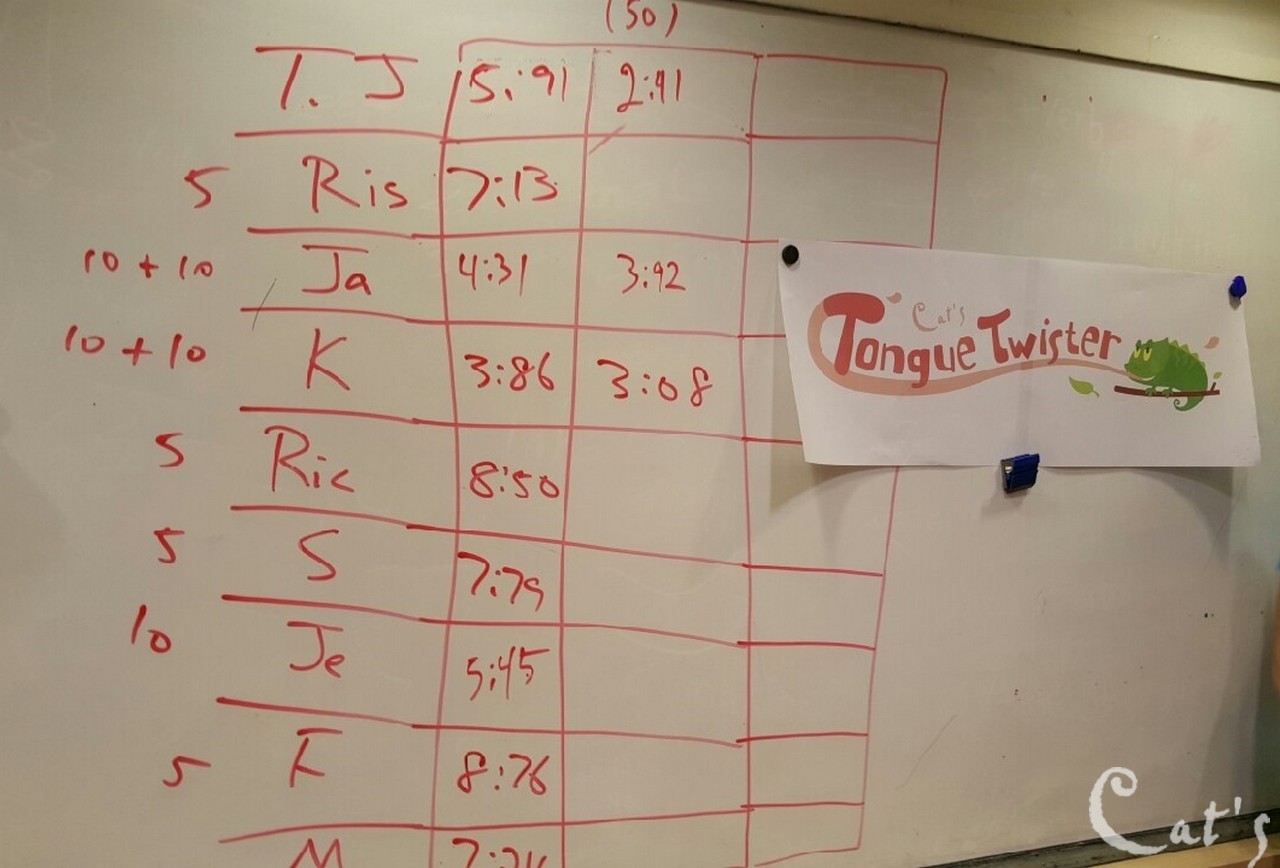 (50)
T. J 5:91 2:41
5 Ris 7:13
10 + 10 Ja 4:31 3:92
10 + 10 K 3:86 3:08
5 Ric 8:50
5 S 7:79
10 Je 5:45
5 F 8:76
M
Cat's
Tongue Twister
Cat's